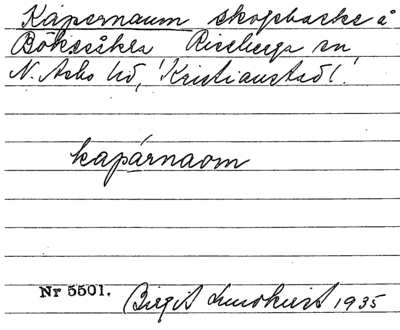 Kapernaum skogsbacke å
Bökesåkra Riseberga sn
N. Åsbo hd, Kristianstad l.
kapárnaom
Nr 5501. Birgit Lundkvist 1935